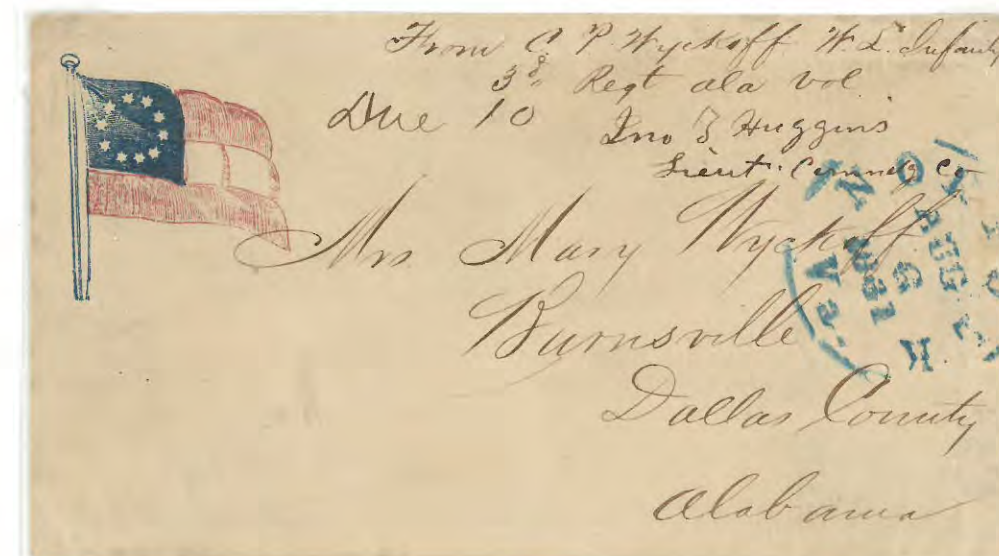 From C. P. Wyckoff W. L. Infanty
3d Regt ala vol
Due 10
Jno F Huggins
Lieut. Commdg Co
Mrs. Mary Wyckoff
Burnsville
Dallas County
Alabama
NO
VA.
AUG
1861